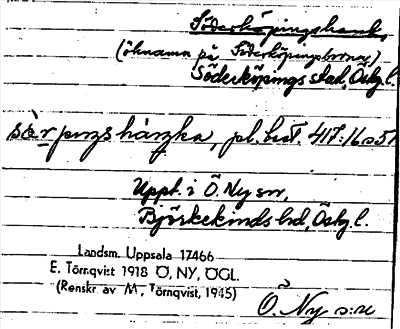 Söderköpingshank,
(öknamn på Söderköpingsborna)
Söderköpings stad, Östg.l.
pl. best. 417:16 s 51
Uppt. i Ö. Ny sn,
Björkekinds hd, Östg.l.
Landsm. Uppsala 17466
E. Törnqvist 1918 Ö, NY, ÖGL.
(Renskr. av M. Törnqvist, 1945)
Ö. Ny s:n